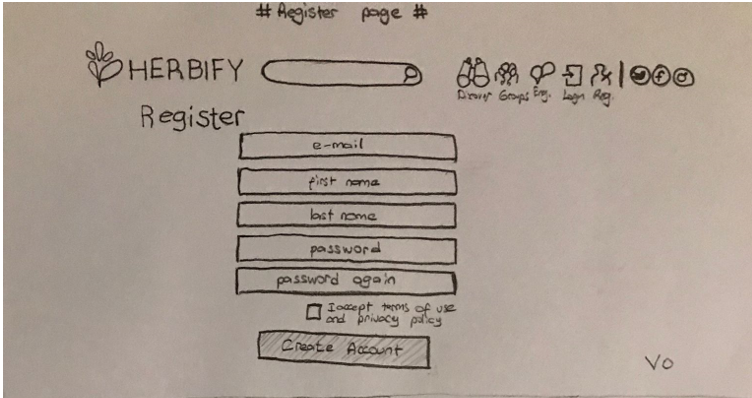 # Register page #
HERBIFY
Discover Groups Eng. Login Reg.
Register
e-mail
first name
last name
password
password again
I accept terms of use
and privacy policy
Create Account
V0